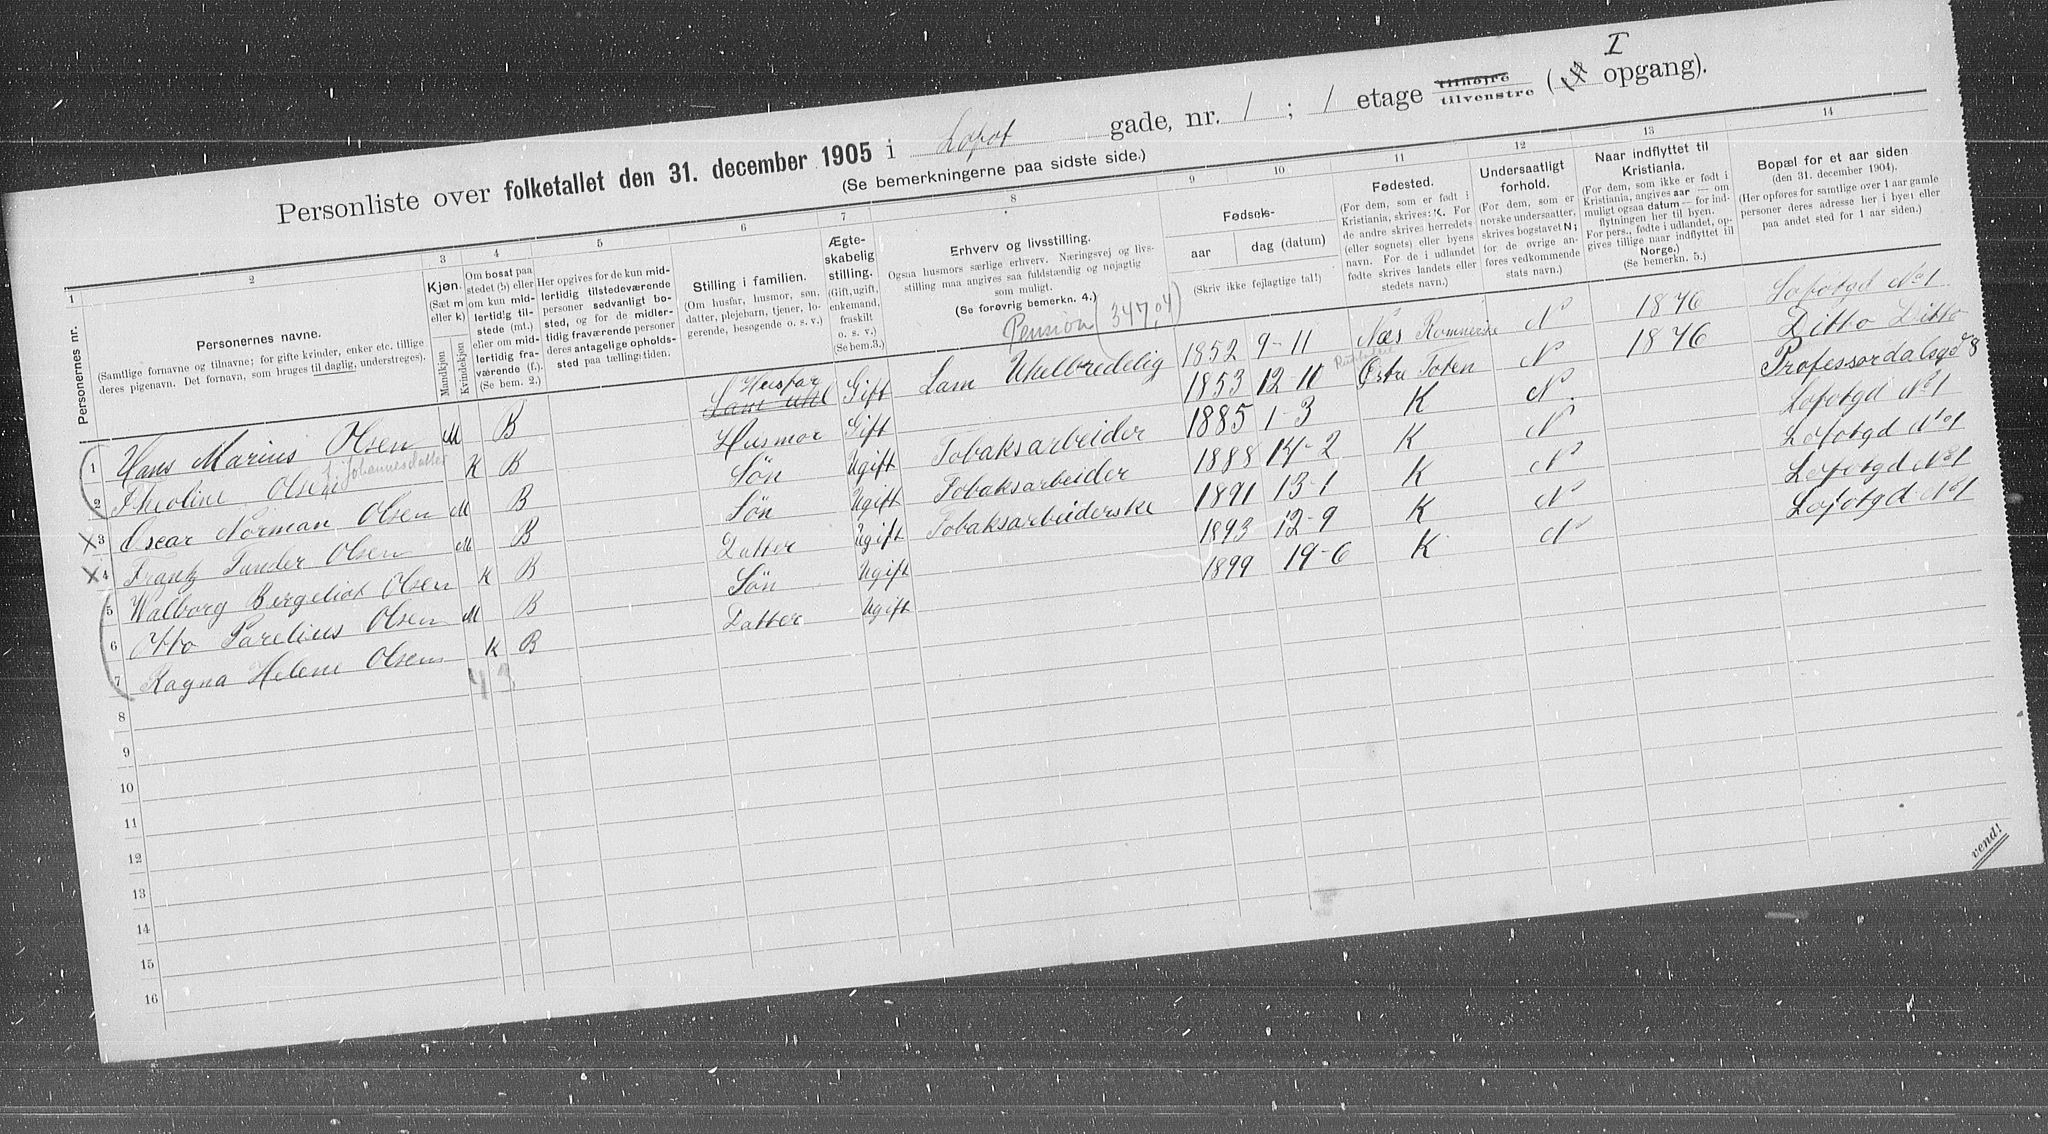 Personliste over folketallet den 31. december 1905 i Lofot gade, nr. 1 ; 1 etage tilhøjre tilvenstre ( I opgang).
(Se bemerkningerne paa sidste side.)
1 2 3 4 5 6 7 8 9 10 11 12 13 14
Personernes nr.
Personernes navne.
(Samtlige fornavne og tilnavne; for gifte kvinder, enker etc. tillige
deres pigenavn. Det fornavn, som bruges til daglig, understreges).
Kjøn.
(Sæt m
eller k)
Mandkjøn
Kvindekjøn
Om bosat paa
stedet (b) eller
om kun mid-
lertidig til-
stede (mt.)
eller om mid-
lertidig fra-
værende (f.).
(Se bem. 2.)
Her opgives for de kun mid-
lertidig tilstedeværende
personer sedvanligt bo-
sted, og for de midler-
tidig fraværende personer
deres antagelige opholds-
sted paa tællingstiden.
Stilling i familien.
(Om husfar, husmor, søn,
datter, plejebarn, tjener, lo-
gerende, besøgende o. s. v.)
Ægte-
skabelig
stilling.
(Gift, ugift,
enkemand,
fraskilt
o. s. v.)
(Se bem.3.)
Erhverv og livsstilling.
Ogsaa husmors særlige erhverv. Næringsvej og livs-
stilling maa angives saa fuldstændig og nøjagtig
som muligt.
(Se forøvrig bemerkn. 4.)
Fødsels-
aar dag (datum)
(Skriv ikke fejlagtige tal!)
Fødested.
(For dem, som er født i
Kristiania, skrives: K. For
de andre skrives herredets
(eller sognets) eller byens
navn. For de i udlandet
fødte skrives landets eller
stedets navn.)
Undersaatligt
forhold.
(For dem, som er
norske undersaatter,
skrives bogstavet N;
for de øvrige an-
føres vedkommende
stats navn.)
Naar indflyttet til
Kristiania.
(For dem, som ikke er født i
Kristiania, angives aar — om
muligt ogsaa datum — for ind-
flytningen her til byen.
For pers., fødte i udlandet, op-
gives tillige naar indflyttet til
Norge.)
(Se bemerkn. 5.)
Bopæl for et aar siden
(den 31. december 1904).
(Her opføres for samtlige over 1 aar gamle
personer deres adresse her i byen eller
paa andet sted for 1 aar siden.)
Pension (347,04)
1 Hans Marius Olsen M B Husfar Gift Lam Uhelbredelig 1852 9-11 Næs Romerike N 1876 Lofotgd No 1
2 Theoline Olsen f. Johannesdatter K B Husmor Gift 1853 12-11 Østre Toten N 1876 Ditto Ditto
3 Oscar Norman Olsen M B Søn Ugift Tobaksarbeider 1885 1-3 K N Professordalsgd 8
4 Frantz Tunder Olsen M B Søn Ugift Tobaksarbeider 1888 14-2 K N Lofotgd No 1
5 Walborg Bergeliot Olsen K B Datter Ugift Tobaksarbeiderske 1891 13-1 K N Lofotgd No 1
6 Otto Parelius Olsen M B Søn Ugift 1893 12-9 K N Lofotgd No 1
7 Ragna Helene Olsen K B Datter Ugift 1899 19-6 K N Lofotgd No 1
4 3
8
9
10
11
12
13
14
15
16
vend!